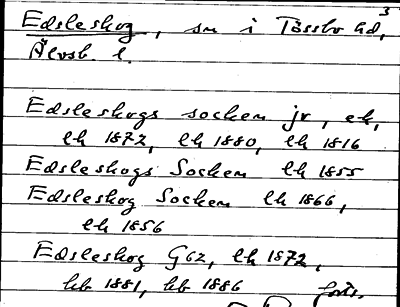 3
Edsleskog, sn i Tössbo hd,
Älvsb. l.
Edsleskogs socken jr, ek,
lk 1872, lk 1880, lk 1816
Edsleskogs Socken lk 1855
Edsleskog Socken lk 1866,
lk 1856
Edsleskog G62, lk 1872,
hb 1881, hb 1886 forts.